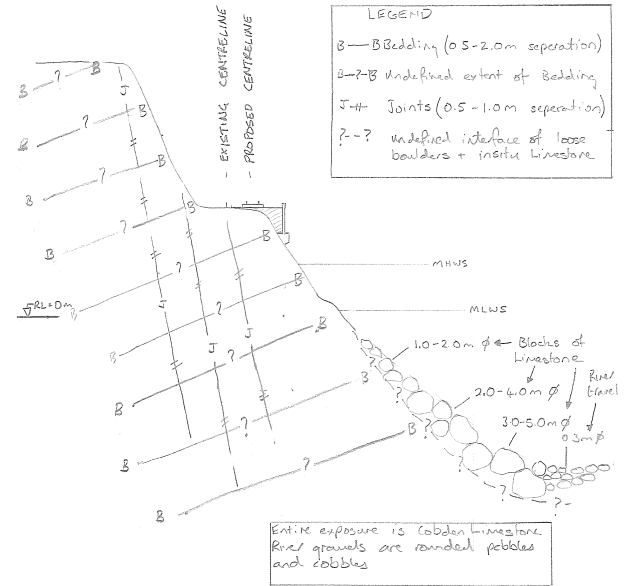 LEGEND
B — B Bedding (0.5-2.0m seperation)
B-?-B Undefined extent of Bedding
J-++- Joints (0.5-1.0m seperation)
?--? Undefined interface of loose
boulders + insitu Limestone
- EXISTING CENTRELINE
- PROPOSED CENTRELINE
B ? B
J
B ? B
B ? B
B ? B
B ? B
MHWS
RL=0m
B ? B
J
MLWS
B ? B
J J
1.0-2.0m ϕ
Blocks of
Limestone
B ? B
2.0-4.0m ϕ
River
3.0-5.0m ϕ
0.3m ϕ
B ? B
? ? ? ? ? ?
Entire exposure is Cobden Limestone
River gravels are rounded pebbles
and cobbles